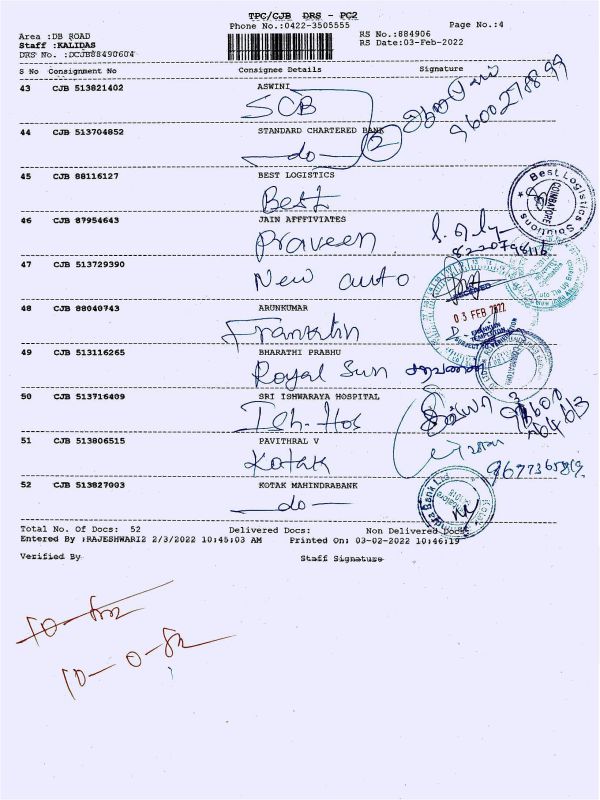 TPC/CJB DRS - PC2
Phone No.:0422-3505555 Page No.:4
Area :DB ROAD RS No.:884906
Staff :KALIDAS RS Date:03-Feb-2022
DRS No. :DCJB88490604
S No Consignment No Consignee Details Signature
43 CJB 513821402 ASWINI
SCB
9600278899
44 CJB 513704852 STANDARD CHARTERED BANK
do 2
45 CJB 88116127 BEST LOGISTICS
Best
Best Logistics Solutions
COIMBATORE
46 CJB 87954643 JAIN AFFFIVIATES
Praveen
8220798116
47 CJB 513729390
New auto
RECEIVED
03 FEB 2022
48 CJB 88040743 ARUNKUMAR
Franklin
FRANKLIN
TEMPLETON
SUBJECT TO VERIFICATION
49 CJB 513116265 BHARATHI PRABHU
Royal Sun
50 CJB 513716409 SRI ISHWARAYA HOSPITAL
Ish-Hos
51 CJB 513806515 PAVITHRAL V
Kotak
52 CJB 513827003 KOTAK MAHINDRABANK
do
Total No. Of Docs: 52 Delivered Docs: Non Delivered Docs:
Entered By :RAJESHWARI2 2/3/2022 10:45:03 AM Printed On: 03-02-2022 10:46:19
Verified By Staff Signature